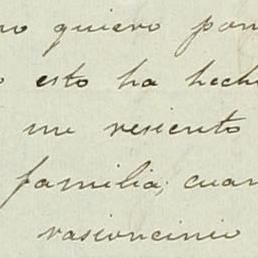 no quiero pon
o esto ha hech
me resiento
familia, cuan
rasioncinio